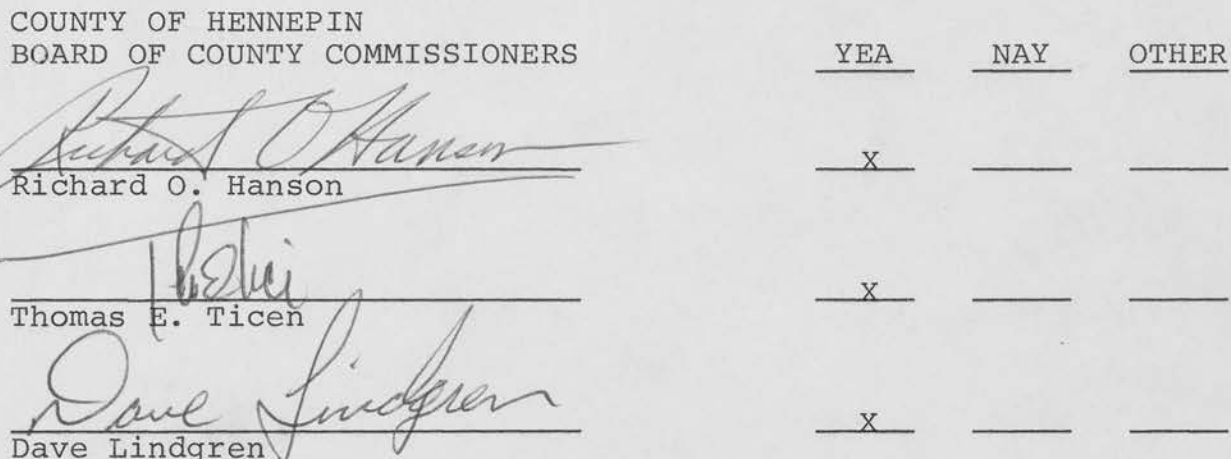 COUNTY OF HENNEPIN
BOARD OF COUNTY COMMISSIONERS YEA NAY OTHER
Richard O Hanson X
Richard O. Hanson
X
Thomas E. Ticen
Dave Lindgren X
Dave Lindgren